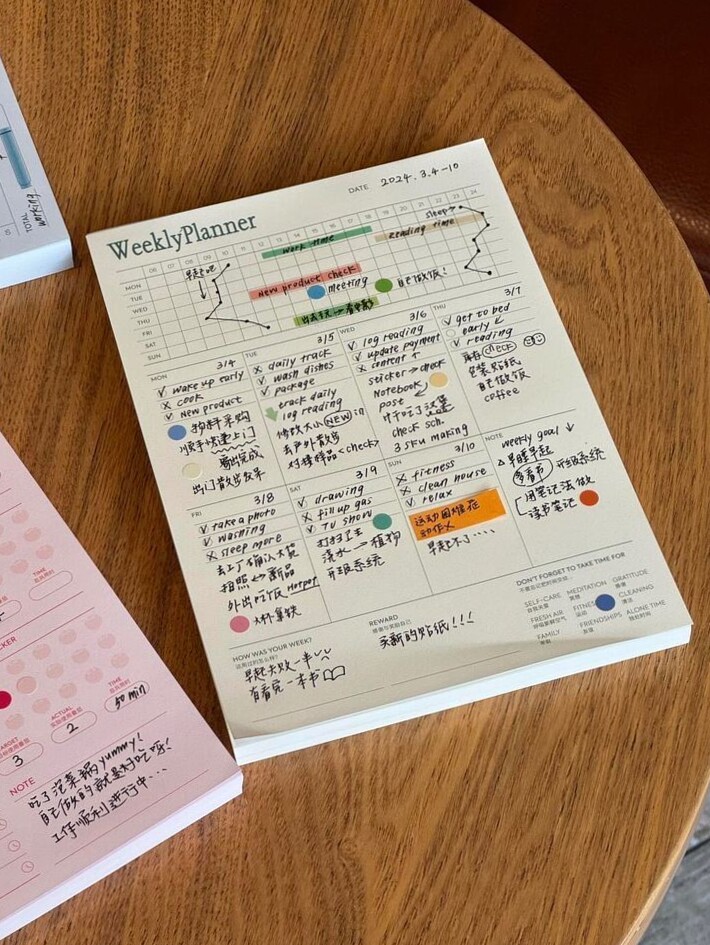 TOTAL
working
WeeklyPlanner
DATE 2024.3.4-10
06 07 08 09 10 11 12 13 14 15 16 17 18 19 20 21 22 23 24
MON
TUE
WED
THU
FRI
SAT
SUN
早起吧
work time
reading time
sleep→
new product check
meeting
自己做饭!
MON 3/4
√ wake up early
× cook
√ new product
物料采购
顺手快递上门
寄出完成
TUE 3/5
× daily track
√ wash dishes
√ package
track daily
log reading
修改大小 NEW in
去户外散步
对接样品<check>
WED 3/6
√ log reading
√ update payment
× content
sticker → check
Notebook
post
check sch.
3 sku making
THU 3/7
√ get to bed
early
√ reading
check
包装贴纸
自己做饭
coffee
FRI 3/8
√ take a photo
√ washing
× sleep more
去工厂确认大货
拍照↔新品
外出吃饭 Hotpot
SAT 3/9
√ drawing
× fill up gas
√ TV show
打扫卫生
浇水→植物
升级系统
SUN 3/10
× fitness
× clean house
√ relax
运动困难症
动作×
早起不了....
NOTE
weekly goal ↓
早睡早起
多看书
升级系统
用笔记法做
读书笔记
HOW WAS YOUR WEEK?
早起失败一半
有看完一本书
REWARD
买新的贴纸!!!
DON'T FORGET TO TAKE TIME FOR
SELF-CARE MEDITATION GRATITUDE
FRESH AIR FITNESS CLEANING
FAMILY FRIENDSHIPS ALONE TIME
TIME
ACTUAL
TIME
3
2
50 min
NOTE
吃了泡菜锅yummy!
自己做的就是好吃呀!
工作顺利进行中...